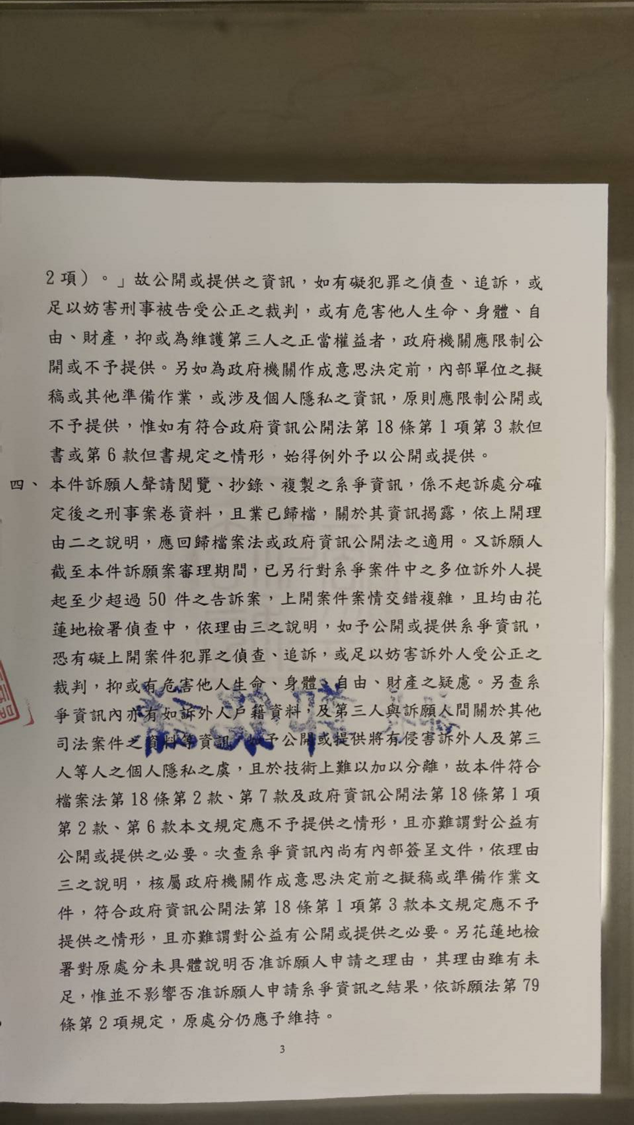 2項)。」故公開或提供之資訊,如有礙犯罪之偵查、追訴,或
足以妨害刑事被告受公正之裁判,或有危害他人生命、身體、自
由、財產,抑或為維護第三人之正當權益者,政府機關應限制公
開或不予提供。另如為政府機關作成意思決定前,內部單位之擬
稿或其他準備作業,或涉及個人隱私之資訊,原則應限制公開或
不予提供,惟如有符合政府資訊公開法第18條第1項第3款但
書或第6款但書規定之情形,始得例外予以公開或提供。
四、本件訴願人聲請閱覽、抄錄、複製之系爭資訊,係不起訴處分確
定後之刑事案卷資料,且業已歸檔,關於其資訊揭露,依上開理
由二之說明,應回歸檔案法或政府資訊公開法之適用。又訴願人
截至本件訴願案審理期間,已另行對系爭案件中之多位訴外人提
起至少超過50件之告訴案,上開案件案情交錯複雜,且均由花
蓮地檢署偵查中,依理由三之說明,如予公開或提供系爭資訊,
恐有礙上開案件犯罪之偵查、追訴,或足以妨害訴外人受公正之
裁判,抑或有危害他人生命、身體、自由、財產之疑慮。另查系
爭資訊內亦有如訴外人戶籍資料,及第三人與訴願人間關於其他
司法案件之資訊,予公開或提供將有侵害訴外人及第三
人等人之個人隱私之虞,且於技術上難以加以分離,故本件符合
檔案法第18條第2款、第7款及政府資訊公開法第18條第1項
第2款、第6款本文規定應不予提供之情形,且亦難謂對公益有
公開或提供之必要。次查系爭資訊內尚有內部簽呈文件,依理由
三之說明,核屬政府機關作成意思決定前之擬稿或準備作業文
件,符合政府資訊公開法第18條第1項第3款本文規定應不予
提供之情形,且亦難謂對公益有公開或提供之必要。另花蓮地檢
署對原處分未具體說明否准訴願人申請之理由,其理由雖有未
足,惟並不影響否准訴願人申請系爭資訊之結果,依訴願法第79
條第2項規定,原處分仍應予維持。
3